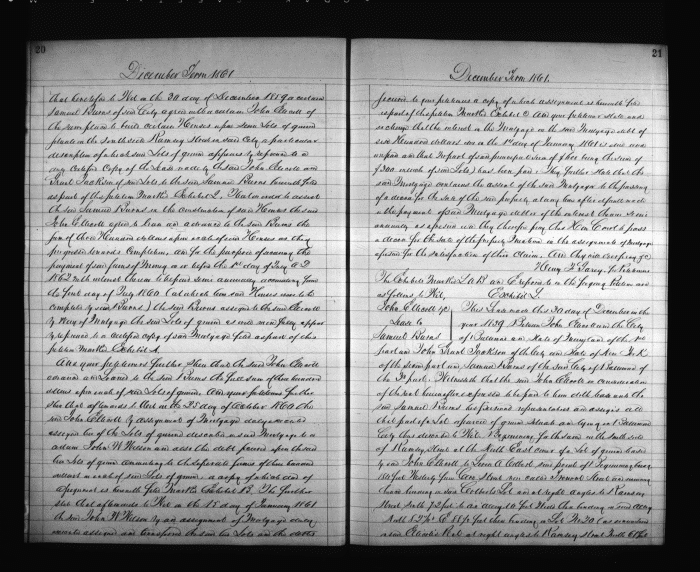 20
December Term 1861
that heretofore to Wit on the 30 day of December 1859 a certain
Samuel Burns of said City agreed with a certain John Elliott of
the same place to build certain Houses upon some Lots of ground
situate on the South side Ramsay Street in said City a particular
description of which said Lots of ground appears by reference to a
certified Copy of the Lease made by the said John Elliott and
Grant Jackson of said Lots to the said Samuel Burns herewith filed
as part of this petition Marked Exhibit L. That in order to assist
the said Samuel Burns in the construction of said Houses the said
John Elliott agreed to loan and advance to the said Burns the
sum of three Hundred dollars upon each of said Houses as they
progressed towards Completion, and for the purpose of securing the
payment of said sums of Money on or before the 1st day of July A.D.
1862 with interest thereon to be paid semi annually accounting from
the first day of July 1860 (at which time said Houses were to be
completed by said Burns) the said Burns assigned to the said Elliott
by Way of Mortgage the said Lots of ground as will more fully appear
by reference to a certified copy of said Mortgage filed as part of this
petition Marked Exhibit A.
And your petitioners further Shew that the said John Elliott
advanced and loaned to the said Burns the full sum of three hundred
dollars upon each of said Lots of ground. And your petitioners further
shew that afterwards to Wit on the 25 day of October 1860 the
said John Elliott by assignment of Mortgage
assigned two of the Lots of ground described in said Mortgage to a
certain John W Wilson and also the debt secured upon the said
two Lots of ground amounting to the separate sums of three hundred
dollars on each of said Lots of ground, a copy of which deed of
assignment is herewith filed Marked Exhibit B. The further
state that afterwards to Wit on the 15 day of January 1861
the said John W Wilson by an assignment of Mortgage
assigned and transferred the said two Lots and the debts
21
December Term 1861.
secured to your petitioners a copy of which assignment is herewith filed
as part of this petition Marked Exhibit C. And your petitioners state and
charge that the interest on the Mortgage on the said Mortgage debt of
six Hundred dollars due on the 1st day of January 1861 is due and
unpaid and that no part of said principal sum of $600 being the sum of
$300 on each of said Lots) has been paid. They further State that the
said Mortgage contains the assent of the said Mortgagor to the passing
of a decree for the sale of the said property at any time after default made
in the payment of said Mortgage debt or of the interest thereon Semi
annually as aforesaid and they therefore pray this Hon. Court to pass
a decree for the sale of the property Mentioned in the assignments of Mortgage
aforesaid for the satisfaction of their Claim. And they will ever pray &c
for Petitioners
The Exhibits Marked L A B and C referred to in the foregoing Petition are
as follows to Wit,
Exhibit L
John Elliott &c
Lease to
Samuel Burns
This Lease made this 30 day of December in the
year 1859 Between John Elliott of the City
of Baltimore and State of Maryland of the 1st
part and John Grant Jackson of the City and State of New York
of the second part and Samuel Burns of the said City of Baltimore of
the 3d part. Witnesseth that the said John Elliott in consideration
of the rent hereinafter expressed to be paid to him doth lease unto the
said Samuel Burns his personal representatives and assigns all
that part of a Lot or parcel of ground situate and lying in Baltimore
City thus described to Wit. Beginning for the same on the South side
of Ramsay Street at the North East corner of a Lot of ground leased
by said John Elliott to said point of Beginning being
Westerly from Street now called Street and running
thence binding on said Lot and at right angles to Ramsay
Street South 75 feet to an alley 10 feet wide then binding on said alley
North 82¾° E feet then binding on Lot No 20 (as
on said Plat) at right angles to Ramsay Street North